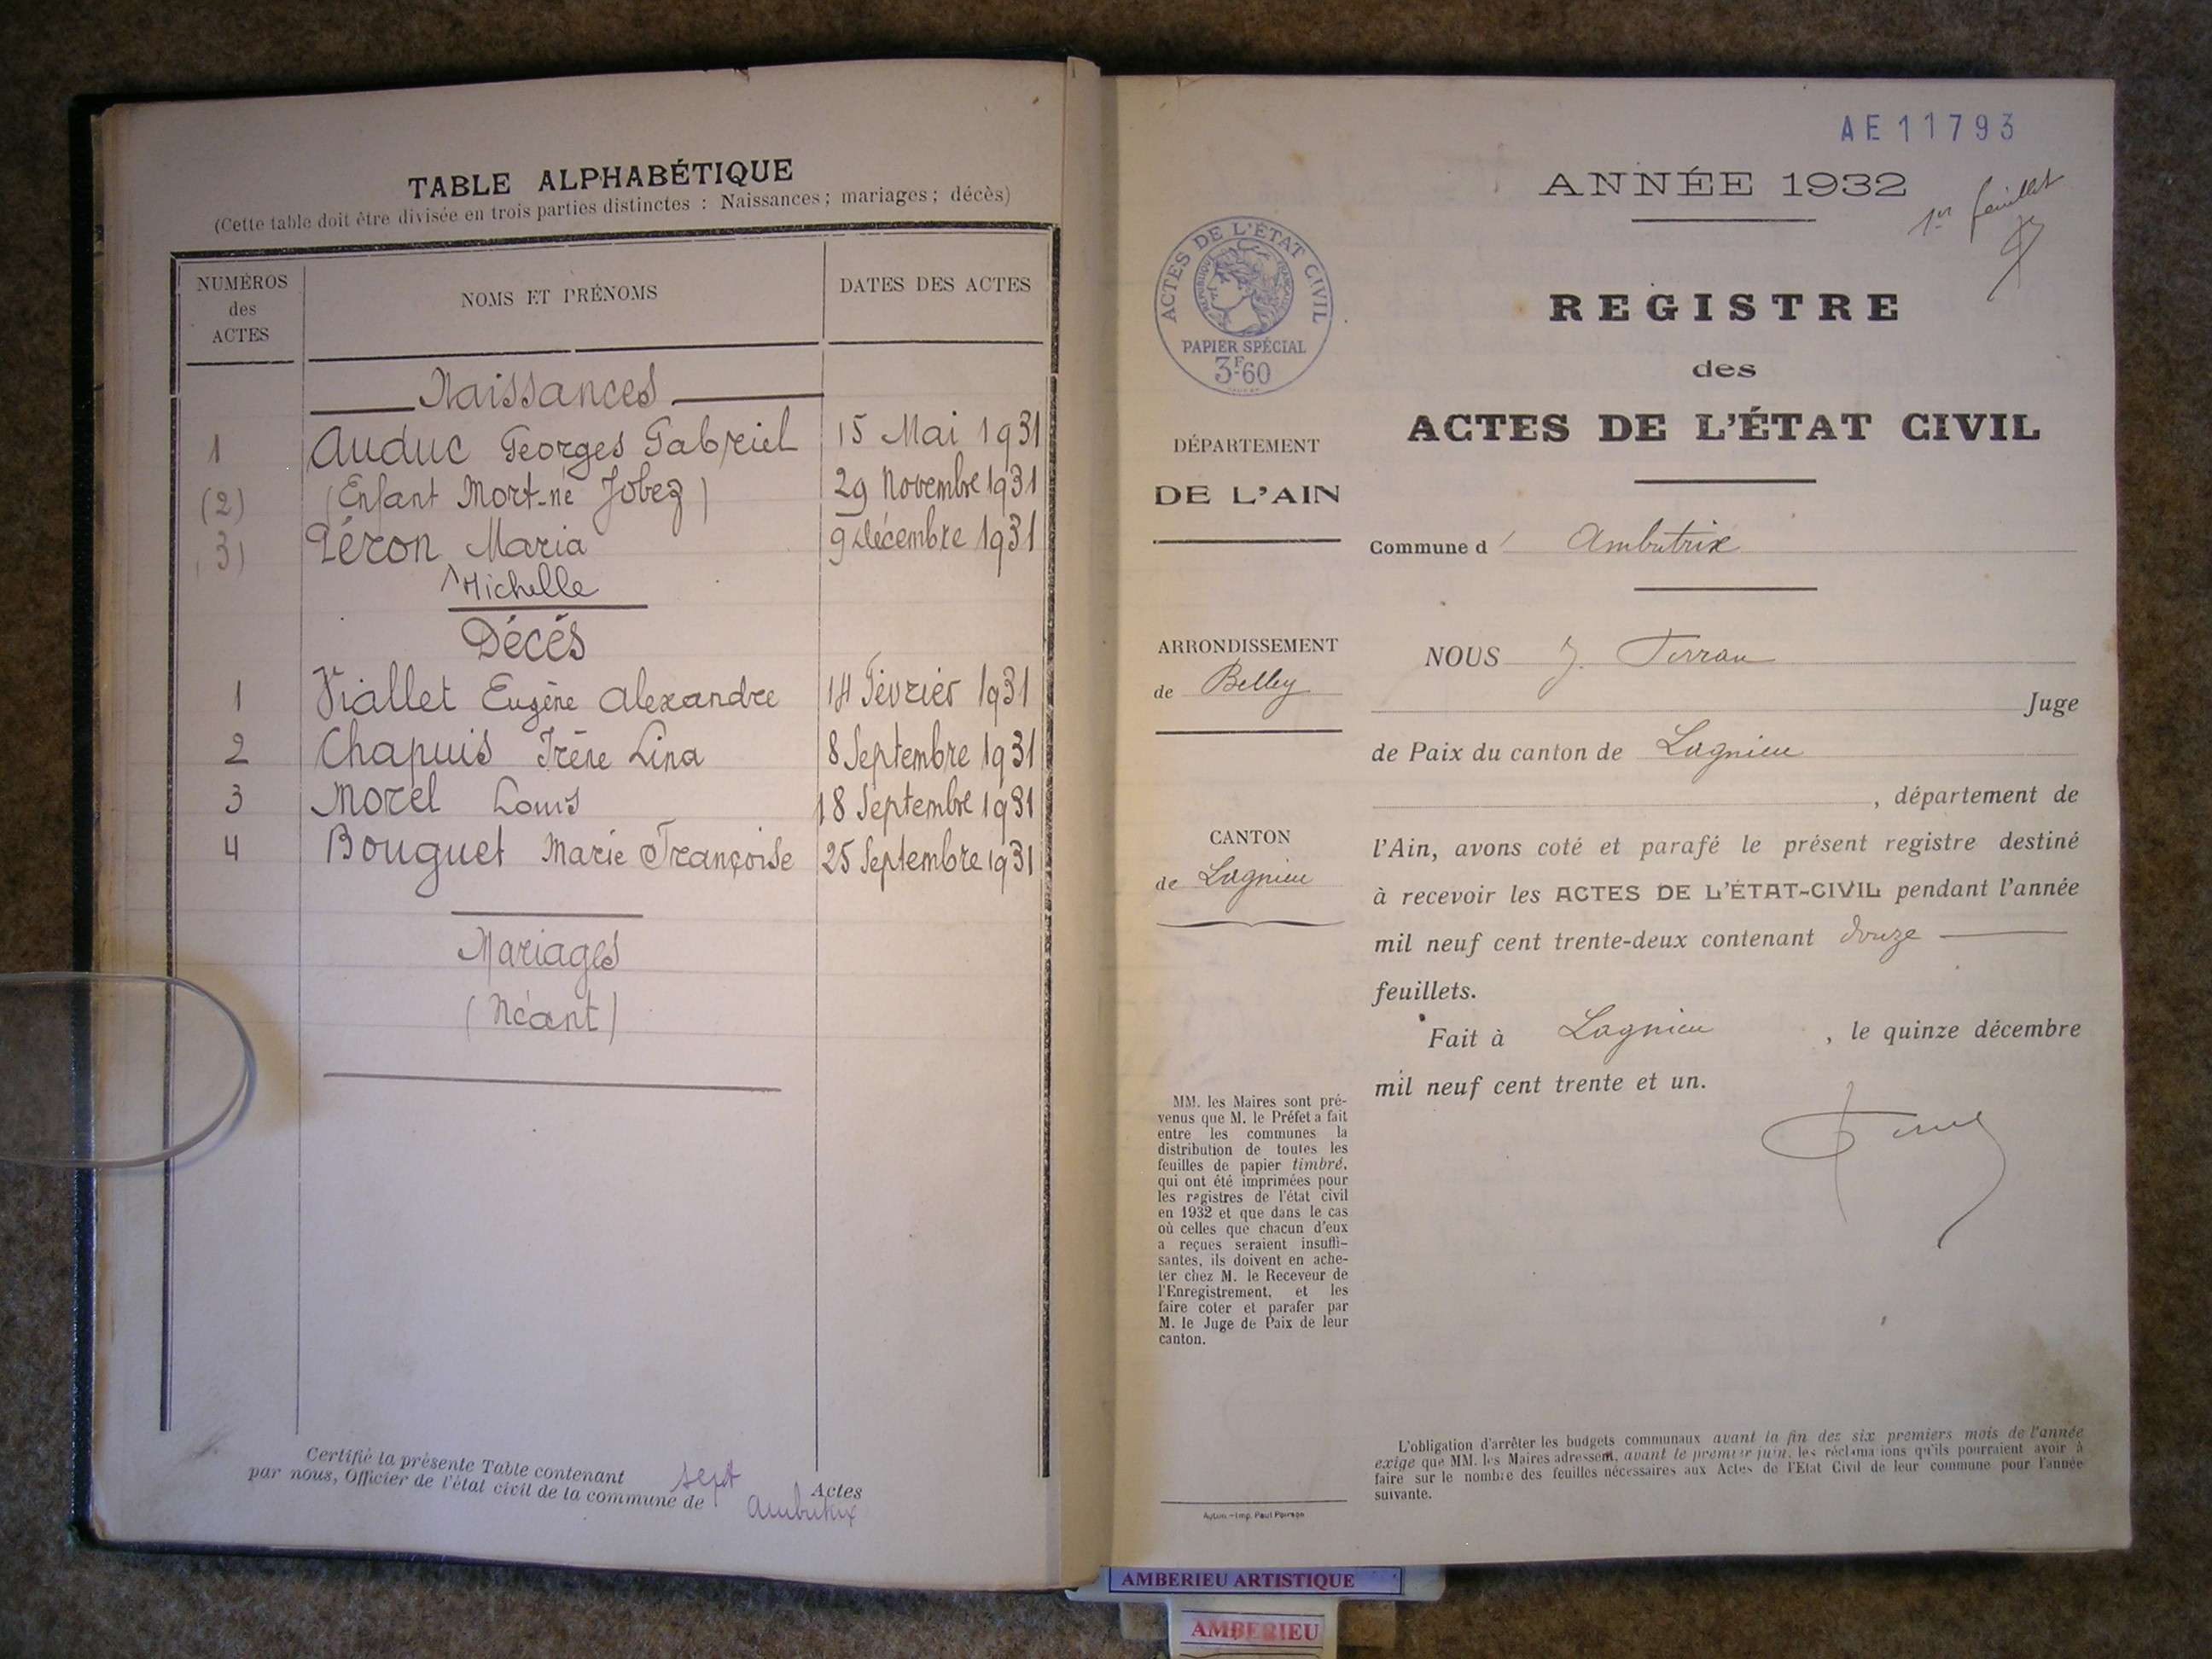 TABLE ALPHABÉTIQUE
(Cette table doit être divisée en trois parties distinctes : Naissances ; mariages ; décès)
NUMÉROS des ACTES
NOMS ET PRÉNOMS
DATES DES ACTES
Naissances
1 Auduc Georges Gabriel 15 Mai 1931
(2) (Enfant Mort-né Jobez) 29 Novembre 1931
3) Péron Maria 9 Décembre 1931
Michelle
Décés
1 Viallet Eugène Alexandre 14 Février 1931
2 Chapuis Irène Lina 8 Septembre 1931
3 Morel Louis 18 Septembre 1931
4 Bouguet Marie Françoise 25 Septembre 1931
Mariages
(Néant)
Certifié la présente Table contenant sept Actes
par nous, Officier de l'état civil de la commune de Ambutrix
AE11793
ANNÉE 1932
1er feuillet
REGISTRE
des
ACTES DE L'ÉTAT CIVIL
ACTES DE L'ÉTAT CIVIL
RÉPUBLIQUE FRANÇAISE
PAPIER SPÉCIAL
3F60
DÉPARTEMENT
DE L'AIN
Commune d' Ambutrix
ARRONDISSEMENT
de Belley
CANTON
de Lagnieu
NOUS J.
Juge
de Paix du canton de Lagnieu
, département de
l'Ain, avons coté et parafé le présent registre destiné
à recevoir les ACTES DE L'ÉTAT-CIVIL pendant l'année
mil neuf cent trente-deux contenant douze
feuillets.
Fait à Lagnieu , le quinze décembre
mil neuf cent trente et un.
MM. les Maires sont pré-
venus que M. le Préfet a fait
entre les communes la
distribution de toutes les
feuilles de papier timbré,
qui ont été imprimées pour
les registres de l'état civil
en 1932 et que dans le cas
où celles que chacun d'eux
a reçues seraient insuffi-
santes, ils doivent en ache-
ter chez M. le Receveur de
l'Enregistrement, et les
faire coter et parafer par
M. le Juge de Paix de leur
canton.
L'obligation d'arrêter les budgets communaux avant la fin des six premiers mois de l'année
exige que MM. les Maires adressent, avant le premier juin, les réclamations qu'ils pourraient avoir à
faire sur le nombre des feuilles nécessaires aux Actes de l'Etat Civil de leur commune pour l'année
suivante.
Imp. Paul
AMBERIEU ARTISTIQUE
AMBERIEU